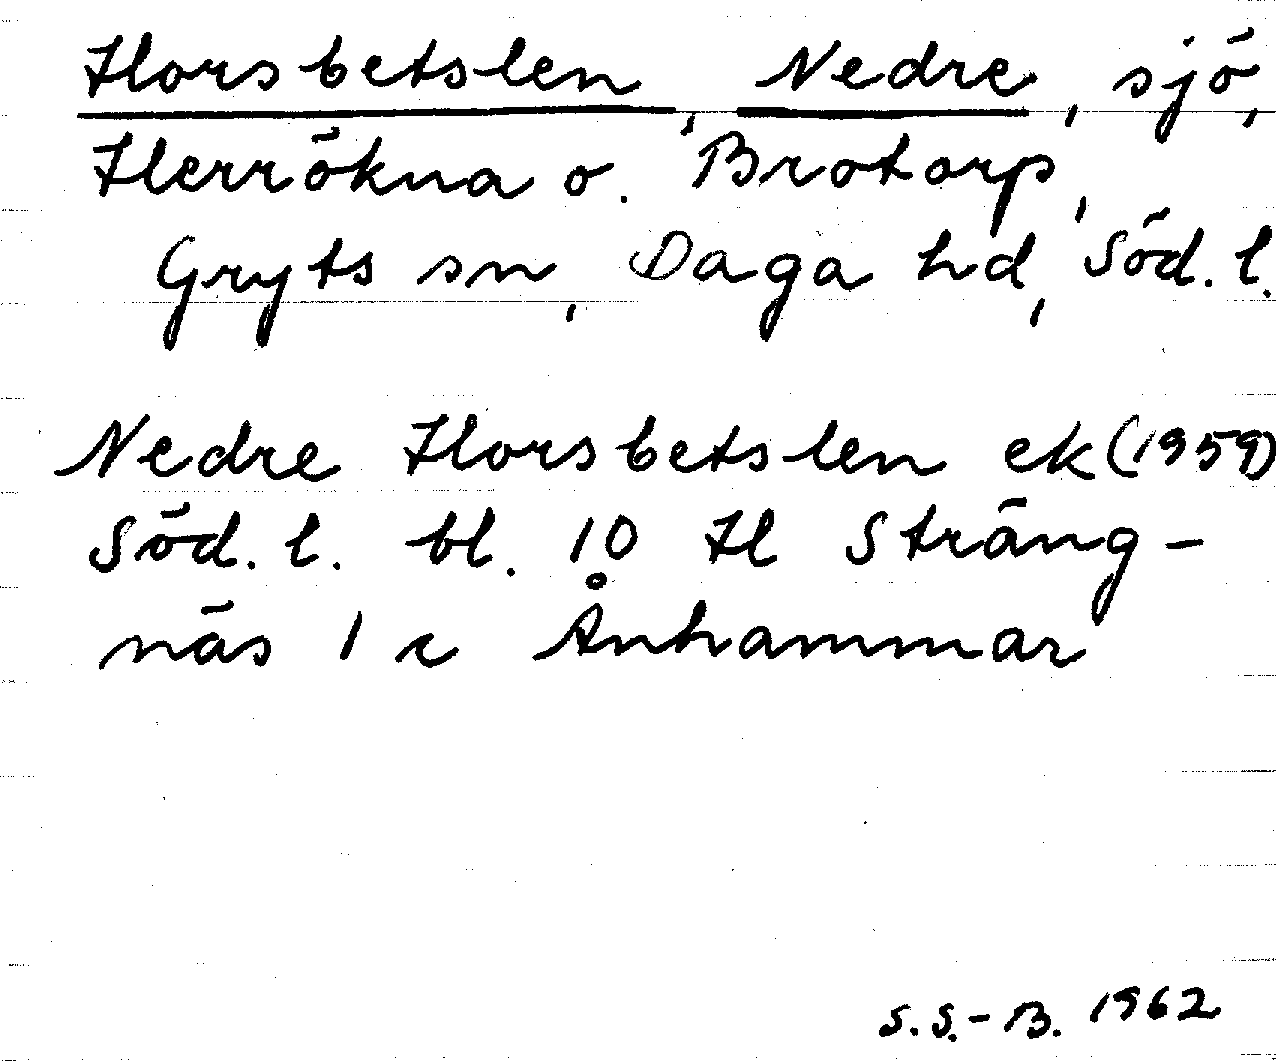 Horsbetslen, Nedre, sjö,
Herrökna o. Brotorp,
Gryts sn, Daga hd, Söd. l.
Nedre Horsbetslen ek (1959)
Söd. l. bl. 10 H Sträng-
näs 1 c Ånhammar
S.S.-B. 1962